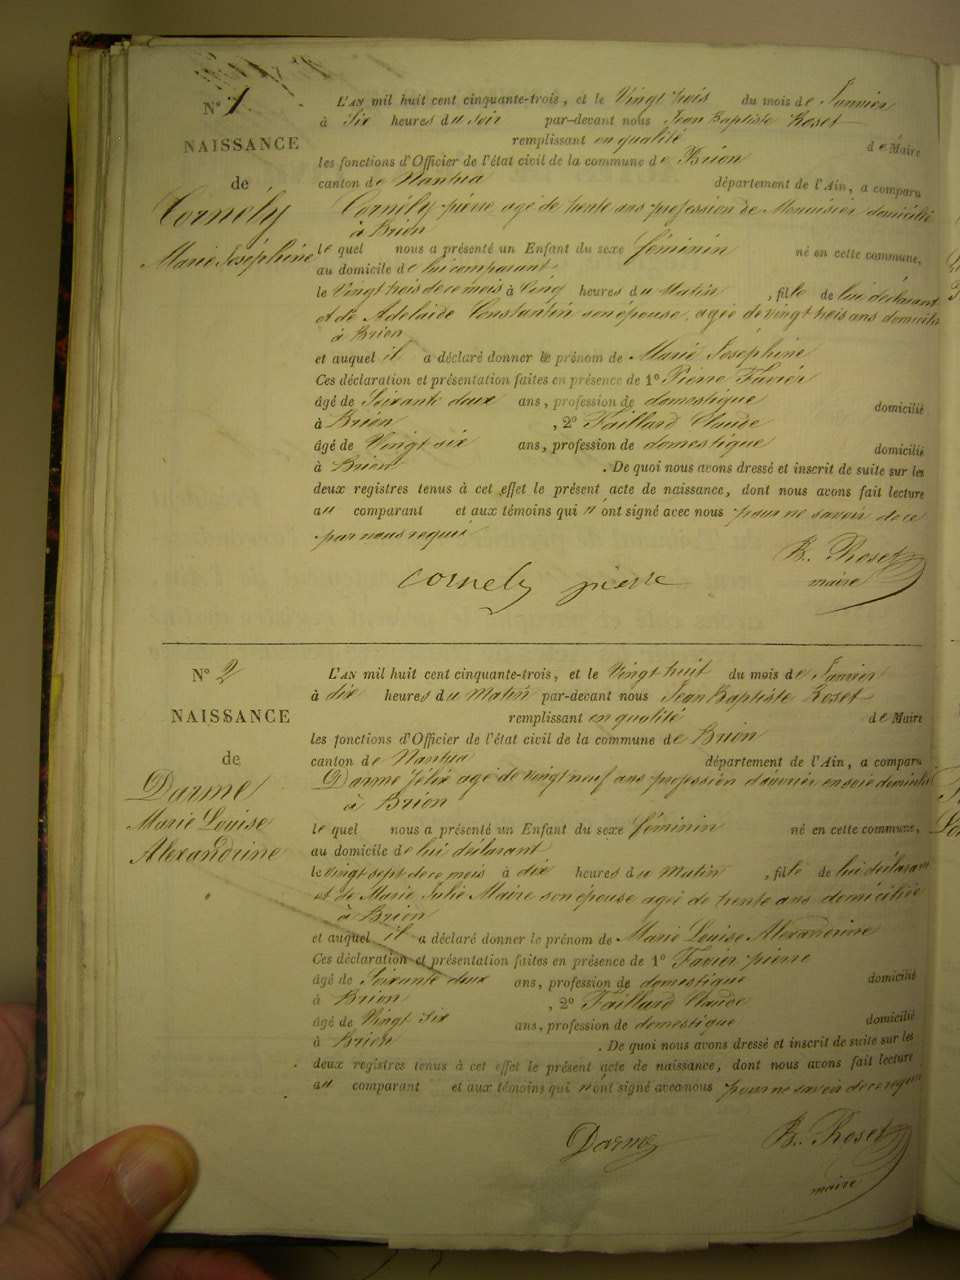 N° 1
NAISSANCE
de
Cornély
Marie Joséphine
L'AN mil huit cent cinquante-trois, et le Vingt trois du mois de Janvier
à Six heures du soir par-devant nous Jean Baptiste Roset
remplissant en qualité de Maire
les fonctions d'Officier de l'état civil de la commune de Brion
canton de Nantua département de l'Ain, a comparu
Cornély pierre agé de trente ans profession de Menuisier domicilié
à Brion
le quel nous a présenté un Enfant du sexe féminin né en cette commune,
au domicile de lui comparant
le Vingt trois de ce mois à Cinq heures du Matin, fille de lui déclarant
et de Adelaïde Constantin son épouse, agée de vingt trois ans domiciliée
à Brion
et auquel il a déclaré donner le prénom de Marie Josephine
Ces déclaration et présentation faites en présence de 1° Pierre Favier
âgé de Soixante deux ans, profession de domestique domicilié
à Brion, 2° Taillard Claude
âgé de Vingt six ans, profession de domestique domicilié
à Brion. De quoi nous avons dressé et inscrit de suite sur les
deux registres tenus à cet effet le présent acte de naissance, dont nous avons fait lecture
au comparant et aux témoins qui n'ont signé avec nous pour ne savoir de ce
par nous requis
B. Roset
maire
cornely pierre
N° 2
NAISSANCE
de
Darme
Marie Louise
Alexandrine
L'AN mil huit cent cinquante-trois, et le Vingt huit du mois de Janvier
à dix heures du Matin par-devant nous Jean Baptiste Roset
remplissant en qualité de Maire
les fonctions d'Officier de l'état civil de la commune de Brion
canton de Nantua département de l'Ain, a comparu
Darme félix agé de vingt neuf ans profession d'ouvrier en soie domicilié
à Brion
le quel nous a présenté un Enfant du sexe féminin né en cette commune,
au domicile de lui déclarant
le vingt sept de ce mois à dix heures du Matin, fille de lui déclarant
et de Marie Julie Maire son épouse agée de trente ans domiciliée
à Brion
et auquel il a déclaré donner le prénom de Marie Louise Alexandrine
Ces déclaration et présentation faites en présence de 1° Favier pierre
âgé de Soixante deux ans, profession de domestique domicilié
à Brion, 2° Taillard Claude
âgé de Vingt Six ans, profession de domestique domicilié
à Brion. De quoi nous avons dressé et inscrit de suite sur les
deux registres tenus à cet effet le présent acte de naissance, dont nous avons fait lecture
au comparant et aux témoins qui n'ont signé avec nous pour ne savoir de ce requis
Darme
B. Roset
maire